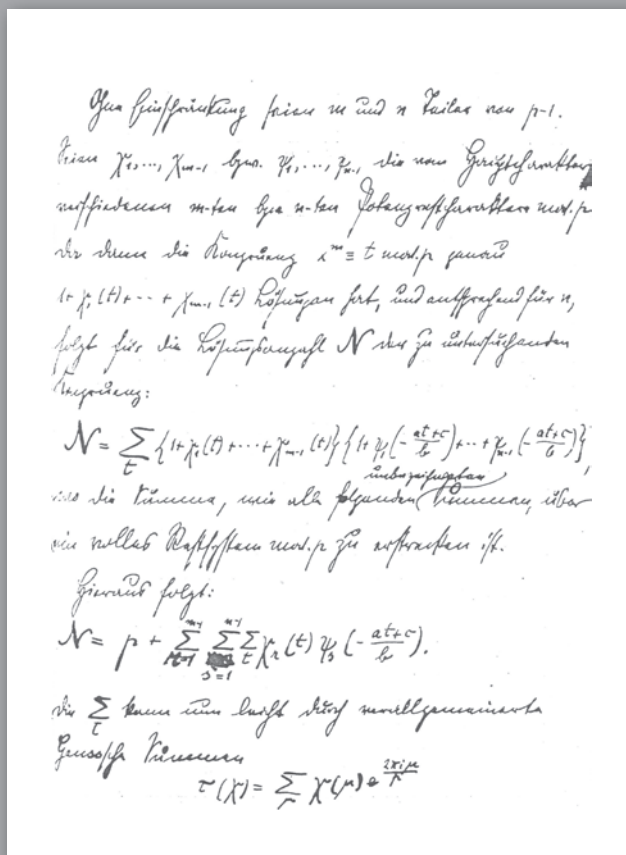 Ohne Einschränkung seien m und n Teiler von p-1.
Seien χ₁,..., χₘ₋₁ bzw. ψ₁,..., ψₙ₋₁ die vom Hauptcharakter
verschiedenen m-ten bzw n-ten Potenzrestcharaktere mod. p
Da dann die Kongruenz x^m ≡ t mod. p genau
1+ χ₁(t)+ ··· + χₘ₋₁(t) Lösungen hat, und entsprechend für n,
folgt für die Lösungsanzahl N der zu untersuchenden
Kongruenz:
N = ∑_t {1+χ₁(t)+···+χₘ₋₁(t)} {1+ψ₁(-(at+c)/b)+···+ψₙ₋₁(-(at+c)/b)},
unbezeichneten
wo die Summe, wie alle folgenden Summen, über
ein volles Restsystem mod. p zu erstrecken ist.
Hieraus folgt:
N = p + ∑_{r=1}^{m-1} ∑_{s=1}^{n-1} ∑_t χ_r(t) ψ_s(-(at+c)/b).
die ∑_t kann nun leicht durch verallgemeinerte
Gaussche Summen
τ(χ) = ∑_μ χ(μ) e^{2πiμ/p}